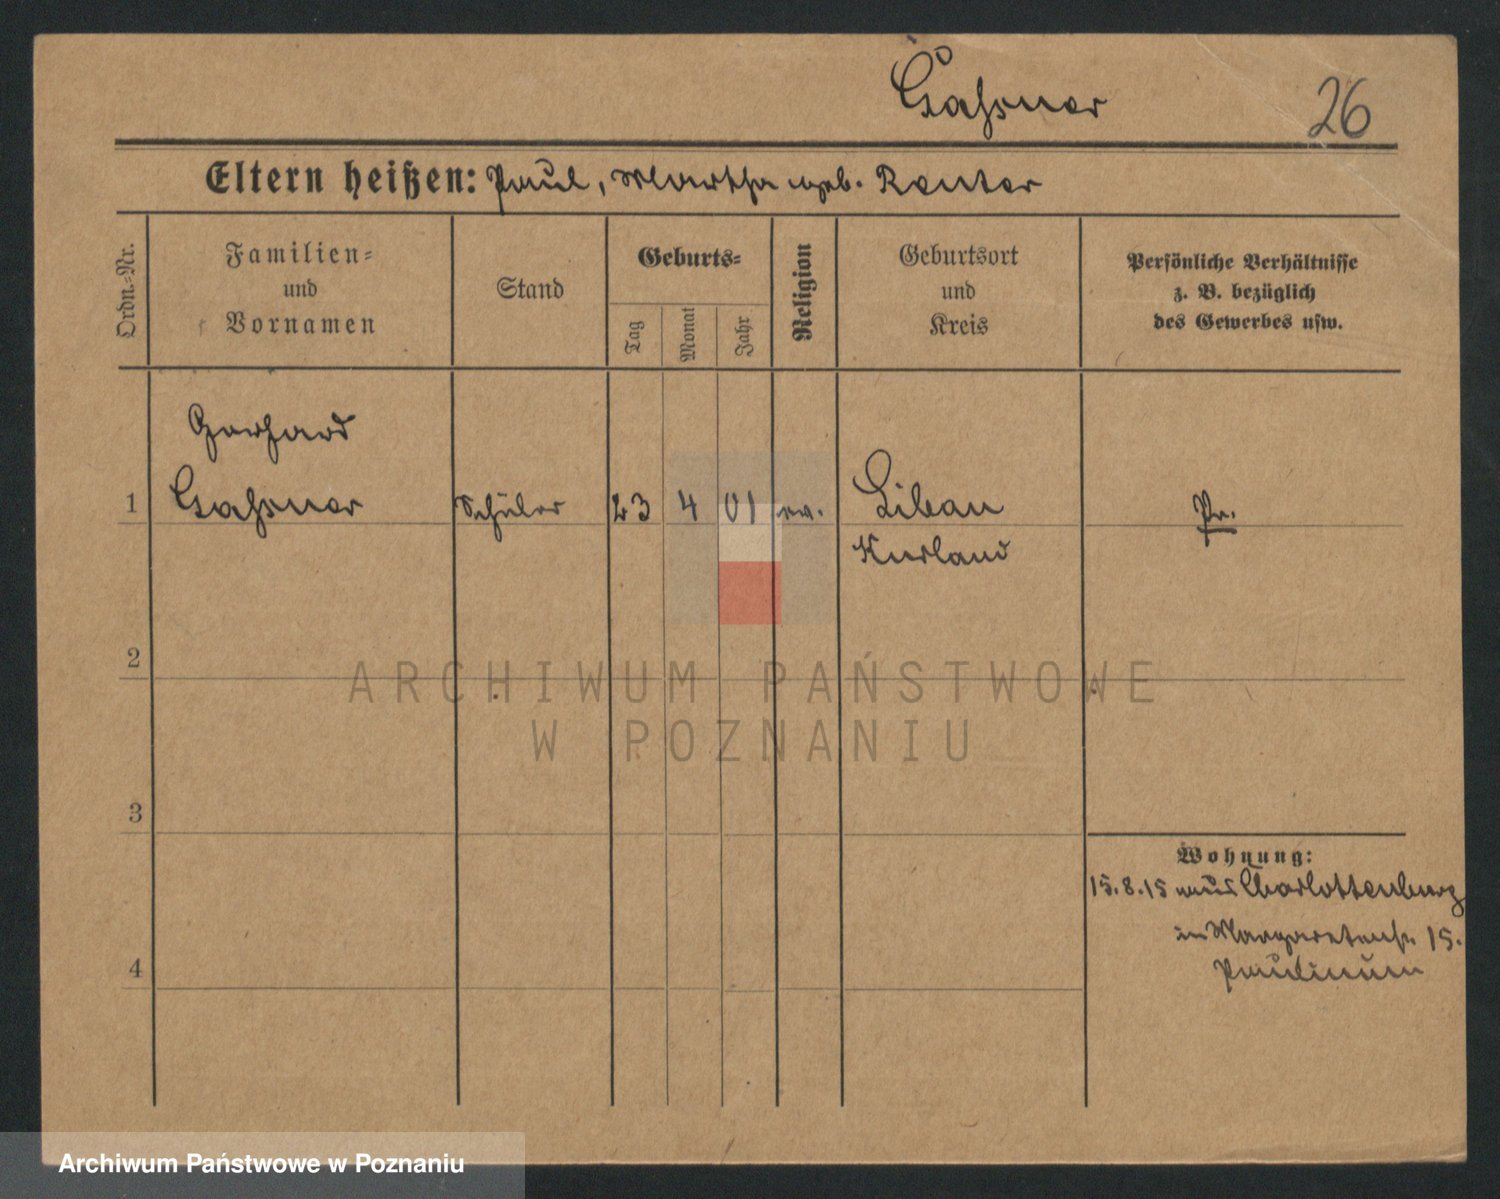 Gassner
26
Eltern heißen: Paul, Martha geb. Reuter
Ordn.-Nr.
Familien-
und
Vornamen
Stand
Geburts-
Tag
Monat
Jahr
Religion
Geburtsort
und
Kreis
Persönliche Verhältnisse
z. B. bezüglich
des Gewerbes usw.
Gerhard
1 Schüler 23 4 01 ev. Libau Pr.
Kurland
2
ARCHIWUM PAŃSTWOWE
W POZNANIU
3
Wohnung:
15.8.15 aus Charlottenburg
in Margaretenstr. 15.
4
Paulinum
Archiwum Państwowe w Poznaniu